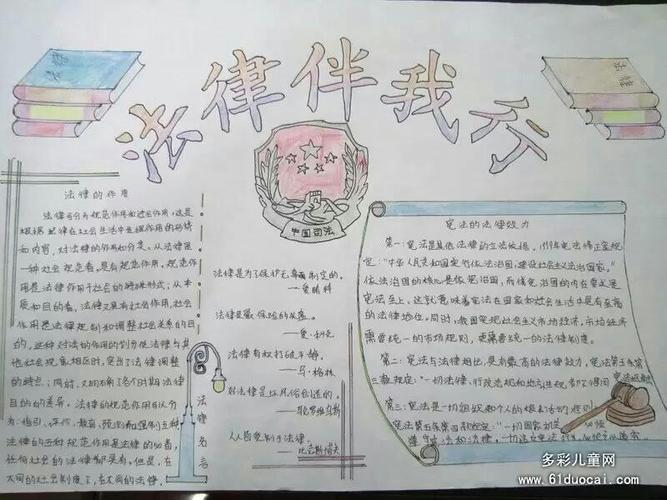 法律伴我行
法律
法律
中国司法
法律的作用
法律可分为规范作用和社会作用,这是
根据法律在社会生活中发挥作用的形式
和内容,对法律的作用的分类。从法律是
一种社会规范看,是有规范作用,规范作
用是法律作用于社会的特殊形式;从本
质和目的看,法律又具有社会作用,社会
作用是法律规制和调整社会关系的目
的。这种对法的作用的划分使法律与其
他社会现象相区别,突出了法律调整
的特点;同时,又明确了各个时期法律
目的的差异。法律的规范作用可以分
为:指引、评价、教育、预测和强制五种
法律的五种规范作用是法律的必备,
任何社会的法律都具有。但是,在
不同的社会制度下,在不同的法律,
法律是为了保护无辜而制定的。
——爱略特
法律是最保险的头盔。
——爱·科克
法律有权打破平静。
——马·格林
好法律是坏风俗创造的。
法律名言
人人皆受制于法律。
宪法的法律效力
第一:宪法是其他法律的立法依据。
定:"中华人民共和国实行依法治国,建设社会主义法治国家。"
依法治国的核心是依宪治国,而依宪治国的内在要义是
宪法至上,这就意味着宪法在国家和社会生活中是有至高
的法律地位。同时,我国实现社会主义市场经济,市场经济
需要统一的市场规则,更需要统一的法律制度。
第二:宪法与法律相比,是有最高的法律效力,宪法第五条第
三款规定:"一切法律、行政法规和地方性法规都不得同宪法相抵触
第三:宪法是一切组织和个人的根本活动准则
宪法第五条第四款规定:"一切国家机关
多彩儿童网
www.61duocai.com